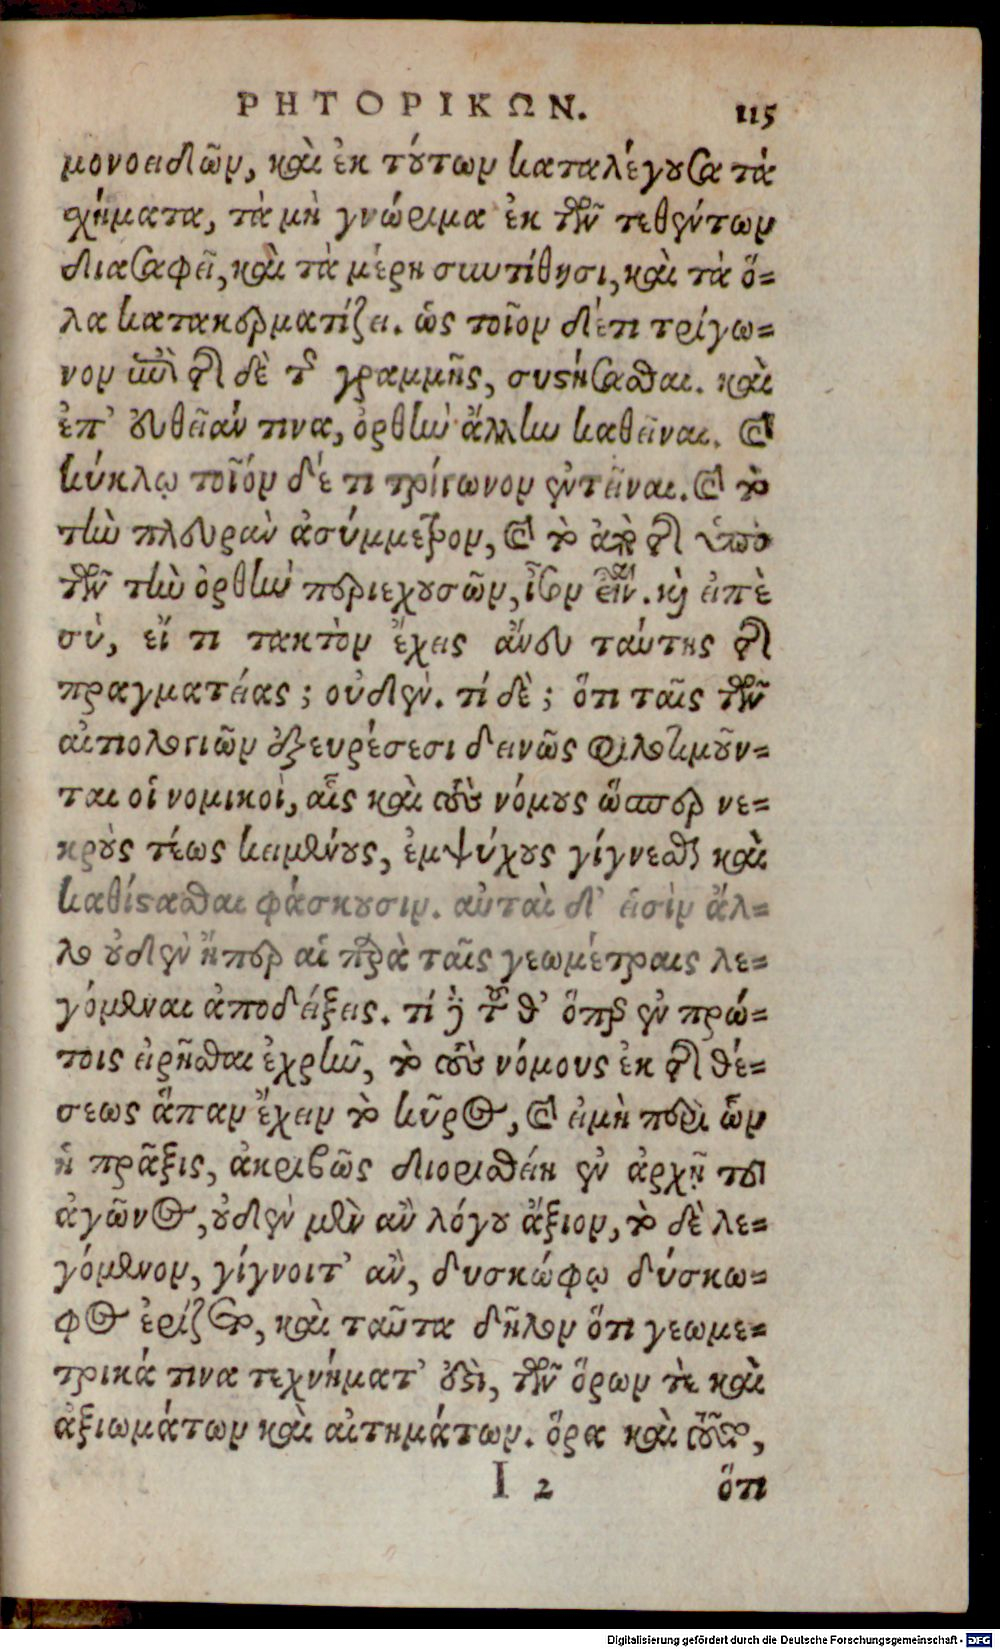 ΡΗΤΟΡΙΚΩΝ. 115
μονοειδῶν, καὶ ἐκ τούτων καταλέγουσα τὰ
σχήματα, τὰ μὴ γνώριμα ἐκ τῶν τεθέντων
διασαφεῖ, καὶ τὰ μέρη συντίθησι, καὶ τὰ ὅ-
λα κατακερματίζει. ὡς ποῖον δέ τι τρίγω-
νον ἐπὶ τῆς δὲ τῆς γραμμῆς, συστήσασθαι. καὶ
ἐπ' εὐθεῖάν τινα, ὀρθὴν ἄλλην καθεῖναι. καὶ
κύκλῳ ποῖόν δέ τι τρίγωνον ἐντεῖναι. καὶ τὸ
τὴν πλευρὰν ἀσύμμετρον, καὶ τὸ ἀπὸ τῆς ὑπὸ
τῶν τὴν ὀρθὴν περιεχουσῶν, ἴσον εἶναι. καὶ εἰπὲ
σὺ, εἴ τι τακτὸν ἔχεις ἄνευ ταύτης τῆς
πραγματείας; οὐδέν. τί δὲ; ὅτι ταῖς τῶν
αἰτιολογιῶν ἐξευρέσεσι δεινῶς φιλοτιμοῦν-
ται οἱ νομικοὶ, αἷς καὶ τοὺς νόμους ὥσπερ νε-
κροὺς τέως κειμένους, ἐμψύχους γίγνεσθαι καὶ
καθίστασθαι φάσκουσιν. αὐταὶ δ' εἰσὶν ἄλ-
λο οὐδὲν ἤπερ αἱ παρὰ ταῖς γεωμέτραις λε-
γόμεναι ἀποδείξεις. τί δὲ τοῦθ' ὅπερ ἐν πρώ-
τοις εἰρῆσθαι ἐχρῆν, τὸ τοὺς νόμους ἐκ τῆς θέ-
σεως ἅπαν ἔχειν τὸ κῦρος, καὶ εἰ μὴ περὶ ὧν
ἡ πρᾶξις, ἀκριβῶς διορισθείη ἐν ἀρχῇ τοῦ
ἀγῶνος, οὐδὲν μὲν ἂν λόγου ἄξιον, τὸ δὲ λε-
γόμενον, γίγνοιτ' ἂν, δυσκώφῳ δύσκω-
φος ἐρίζων, καὶ ταῦτα δῆλον ὅτι γεωμε-
τρικά τινα τεχνήματ' ἐστὶ, τῶν ὅρων τὲ καὶ
ἀξιωμάτων καὶ αἰτημάτων. ὅρα καὶ τοῦτο,
I 2 ὅτι
Digitalisierung gefördert durch die Deutsche Forschungsgemeinschaft - DFG